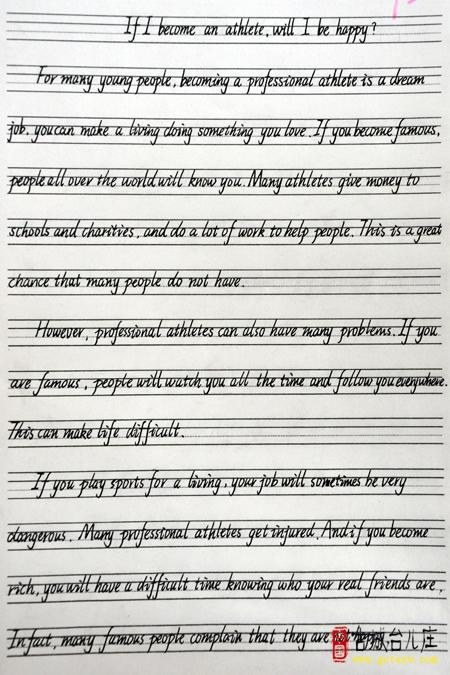 If I become an athlete, will I be happy?
For many young people, becoming a professional athlete is a dream
job. you can make a living doing something you love. If you become famous,
people all over the world will know you. Many athletes give money to
schools and charities, and do a lot of work to help people. This is a great
chance that many people do not have.
However, professional athletes can also have many problems. If you
are famous, people will watch you all the time and follow you everywhere.
This can make life difficult.
If you play sports for a living, your job will sometimes be very
dangerous. Many professional athletes get injured. And if you become
rich, you will have a difficult time knowing who your real friends are.
In fact, many famous people complain that they are not happy
古城台儿庄